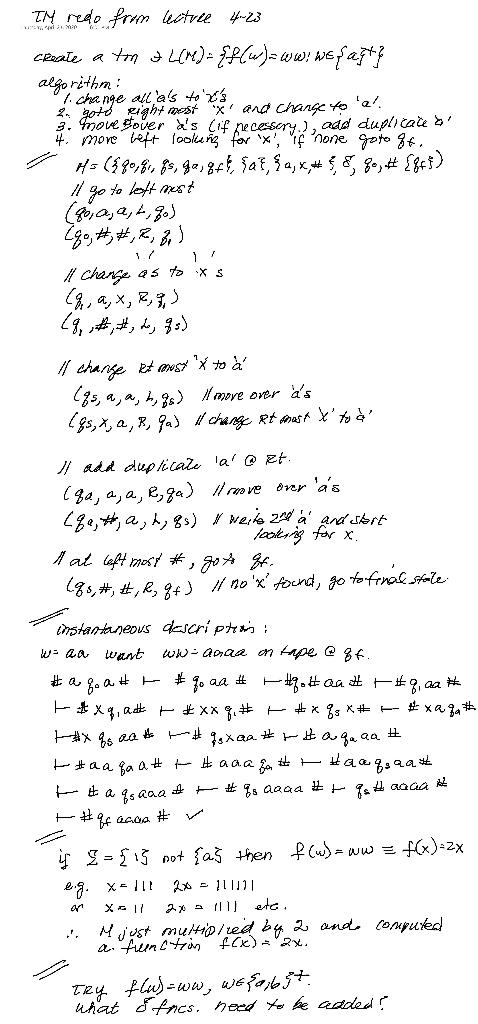 TM redo from lecture 4-23
create a tm ∋ L(M) = {f(w)=ww | w∈{a}⁺}
algorithm:
1. change all a's to 'x's
2. goto right most 'x' and change to 'a'.
3. move over 'a's (if necessary), add duplicate 'a'
4. move left looking for 'x', if none goto qf.
M = ({q0, q1, qs, qa, qf}, {a}, {a, x, #}, δ, q0, # {qf})
// go to left most
(q0, a, a, L, q0)
(q0, #, #, R, q1)
// change 'a's to 'x's
(q1, a, x, R, q1)
(q1, #, #, L, qs)
// change rt most 'x' to 'a'
(qs, a, a, L, qs) // move over 'a's
(qs, x, a, R, qa) // change rt most 'x' to 'a'
// add duplicate 'a' @ rt.
(qa, a, a, R, qa) // move over 'a's
(qa, #, a, L, qs) // write 2nd 'a' and start
looking for x.
// at left most #, goto qf.
(qs, #, #, R, qf) // no 'x' found, go to final state
instantaneous description:
w = aa want ww = aaaa on tape @ qf.
# a q0 a # ⊢ # q0 aa # ⊢ # q0 # aa # ⊢ # q1 aa #
⊢ # x q1 a # ⊢ # xx q1 # ⊢ # x qs x # ⊢ # x a qa #
⊢ # x qs aa # ⊢ # qs x aa # ⊢ # a qa aa #
⊢ # aa qa a # ⊢ # aaa qa # ⊢ # aa qs aa #
⊢ # a qs aaa # ⊢ # qs aaaa # ⊢ qs # aaaa #
⊢ # qf aaaa # ✓
if Σ = {1} not {a} then f(w) = ww ≡ f(x) = 2x
e.g. x = 111 2x = 111111
or x = 11 2x = 1111 etc.
∴ M just multiplied by 2 and computed
a function f(x) = 2x.
TRY f(w) = ww, w∈{a,b}⁺.
what δ fncs. need to be added?